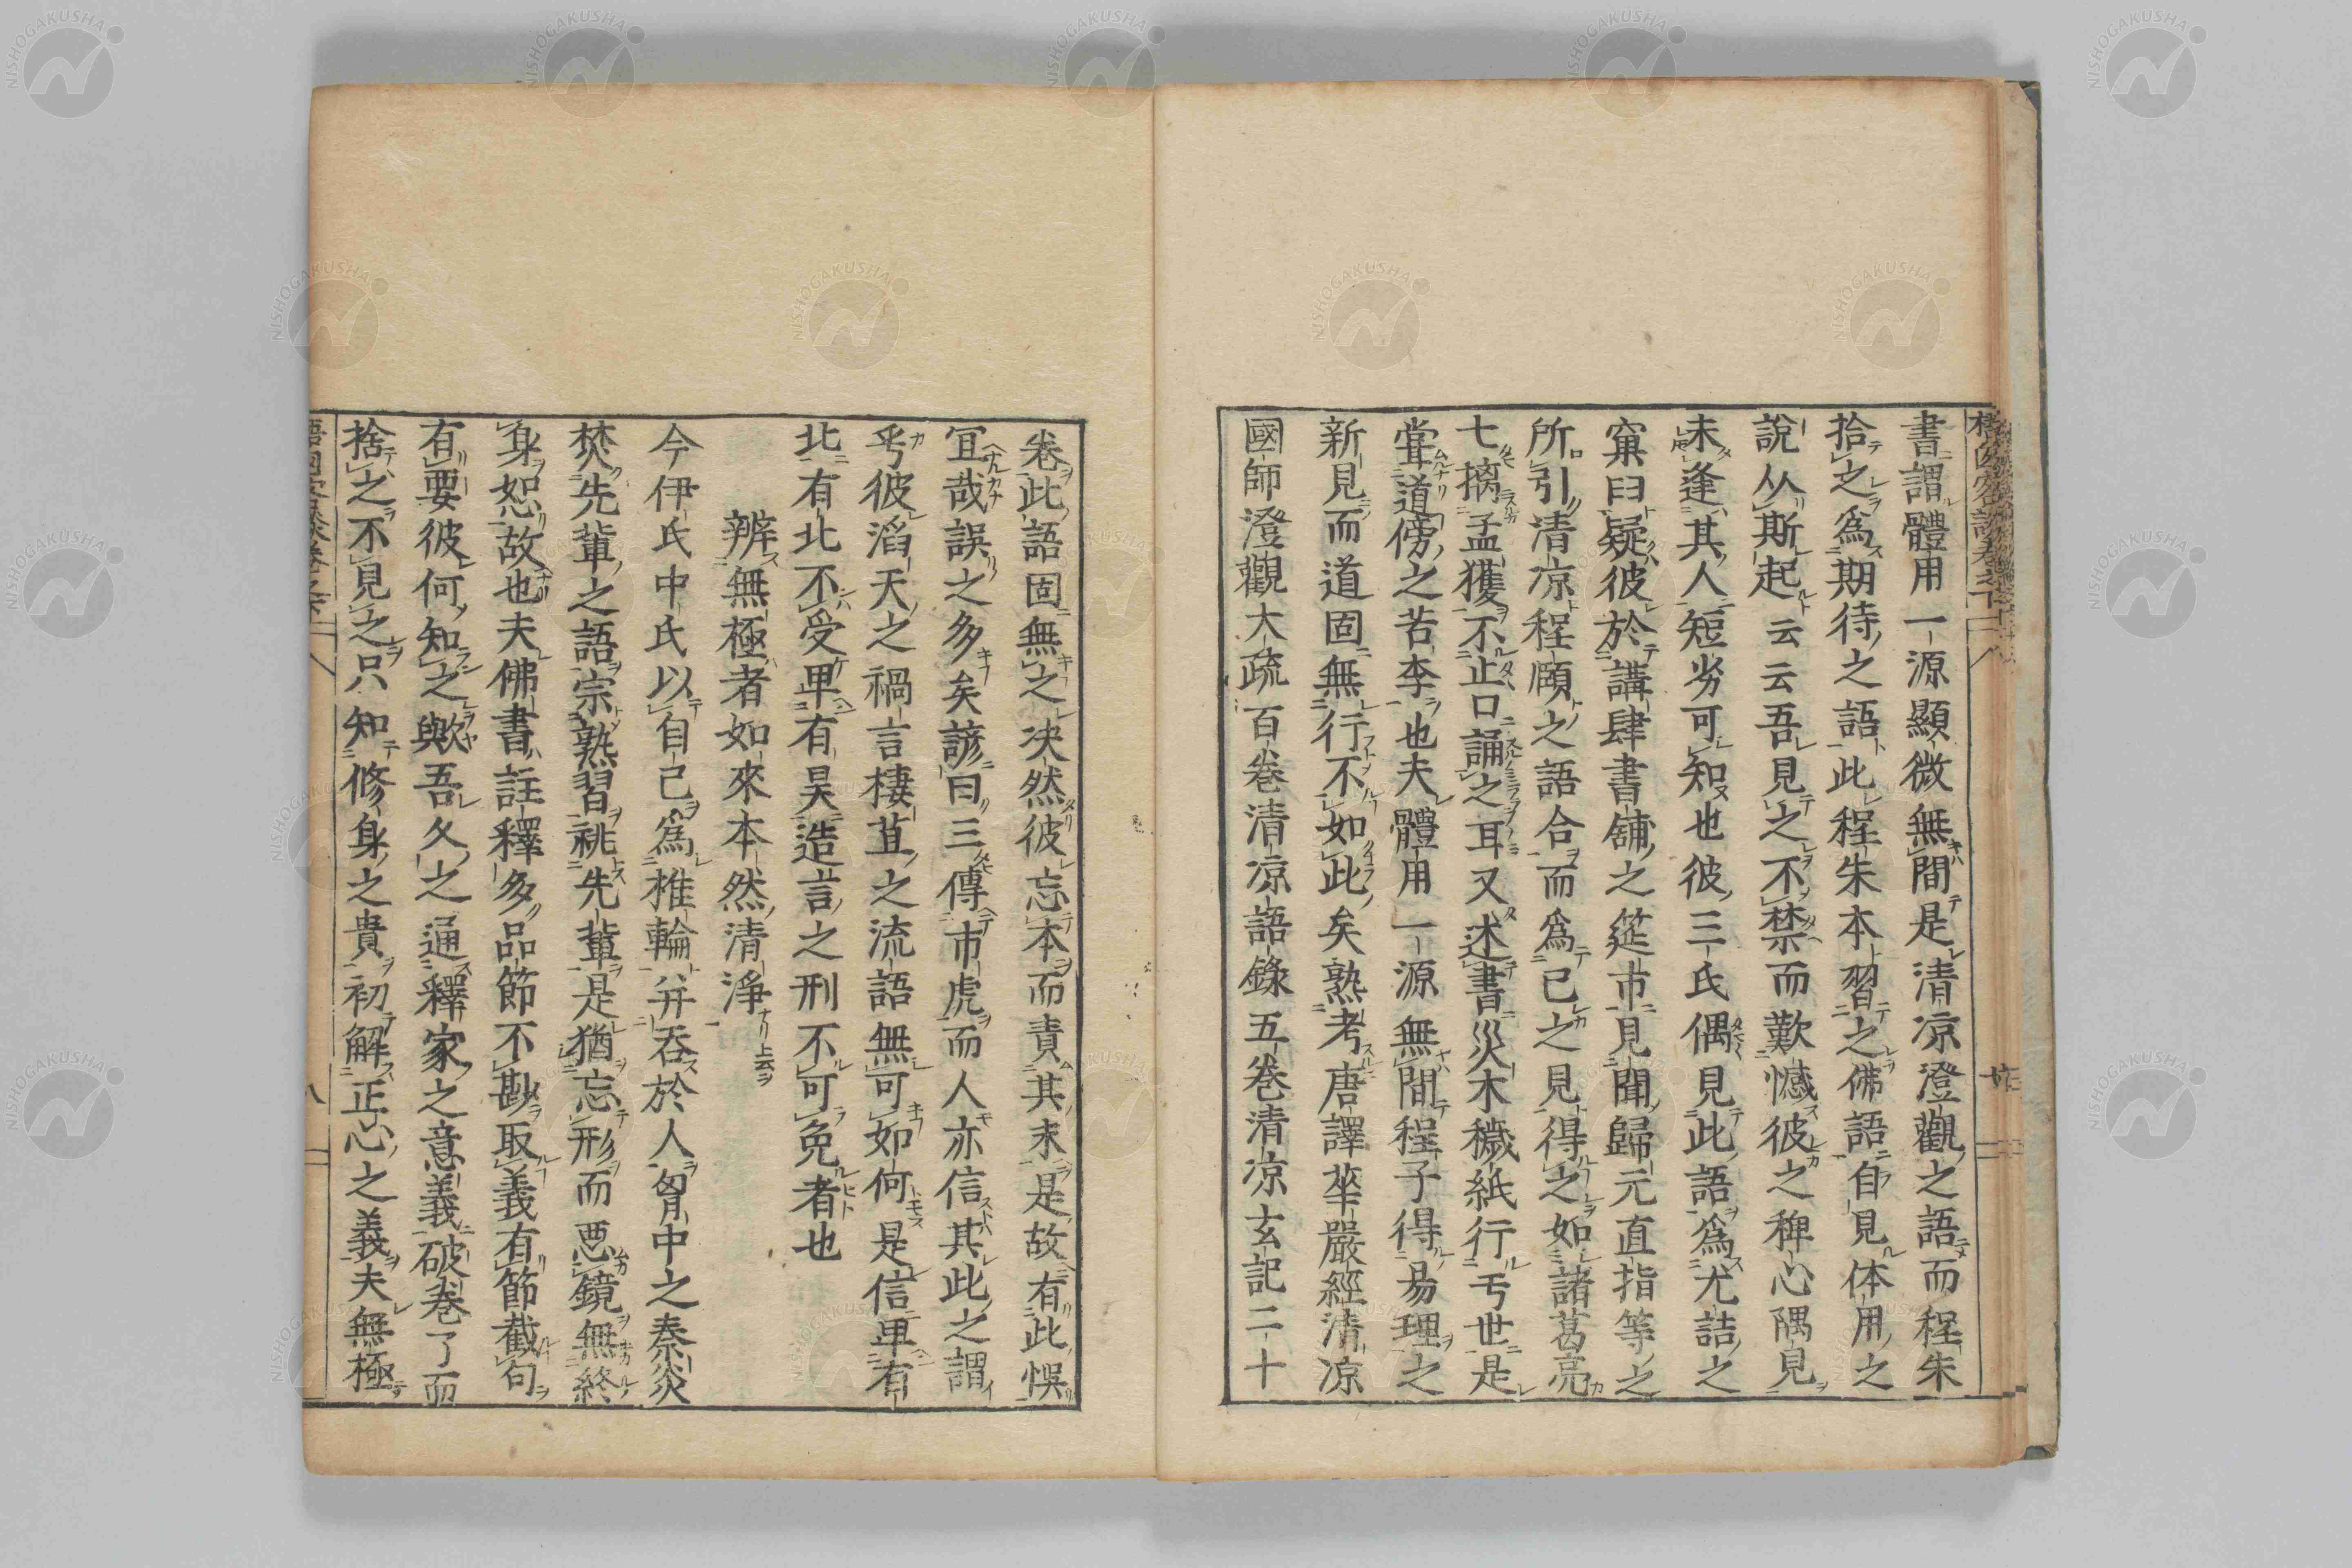 書謂體用一源顯微無間是清凉澄觀之語而程朱
拾之爲期待之語此程朱本習之佛語自見体用之
說从斯起云云吾見之不禁而歎憾彼之稗心隅見
未逢其人短劣可知也彼三氏偶見此語爲尤詰之
窠臼疑彼於講肆書舖之莚市見聞歸元直指等之
所引清凉程頤之語合而爲已之見得之如諸葛亮
七擒孟獲不止口誦之耳又述書災木穢紙行于世是
當道傍之苦李也夫體用一源無間程子得易理之
新見而道固無行不如此矣熟考唐譯華嚴經清凉
國師澄觀大疏百卷清凉語錄五卷清凉玄記二十
卷此語固無之决然彼忘本而責其末是故有此悞
冝哉誤之多矣諺曰三傳市虎而人亦信其此之謂
乎彼滔天之禍言棲苴之流語無可如何是信畀有
北有北不受畀有昊造言之刑不可免者也
辨無極者如來本然清淨
今伊氏中氏以自己爲椎輪并吞於人胷中之秦炎
焚先輩之語宗熟習祧先輩是猶忘形而惡鏡無終
身恕故也夫佛書註釋多品節不尠取義有節截句
有要彼何知之歟吾久之通釋家之意義破卷了而
捨之不見之只知修身之貴初解正心之義夫無極